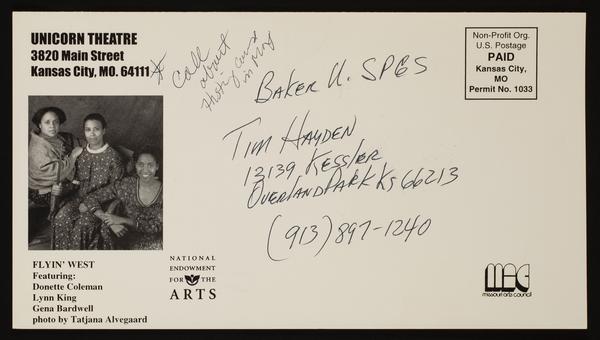 UNICORN THEATRE
3820 Main Street
Kansas City, MO. 64111
* call
about
in prog
BAKER U. SPES
TIM HAYDEN
12139 KESSLER
OVERLAND PARK KS 66213
(913) 897-1240
Non-Profit Org.
U.S. Postage
PAID
Kansas City,
MO
Permit No. 1033
FLYIN' WEST
Featuring:
Donette Coleman
Lynn King
Gena Bardwell
photo by Tatjana Alvegaard
NATIONAL
ENDOWMENT
FOR THE
ARTS
mac
missouri arts council